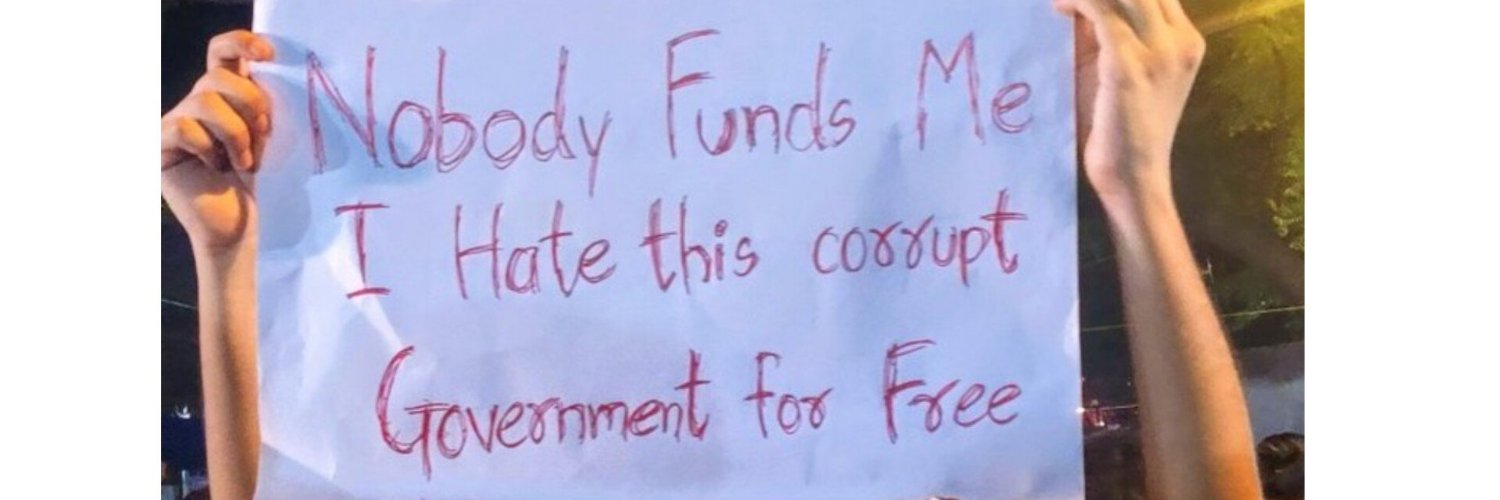 Nobody Funds Me
I Hate this corrupt
Government for Free